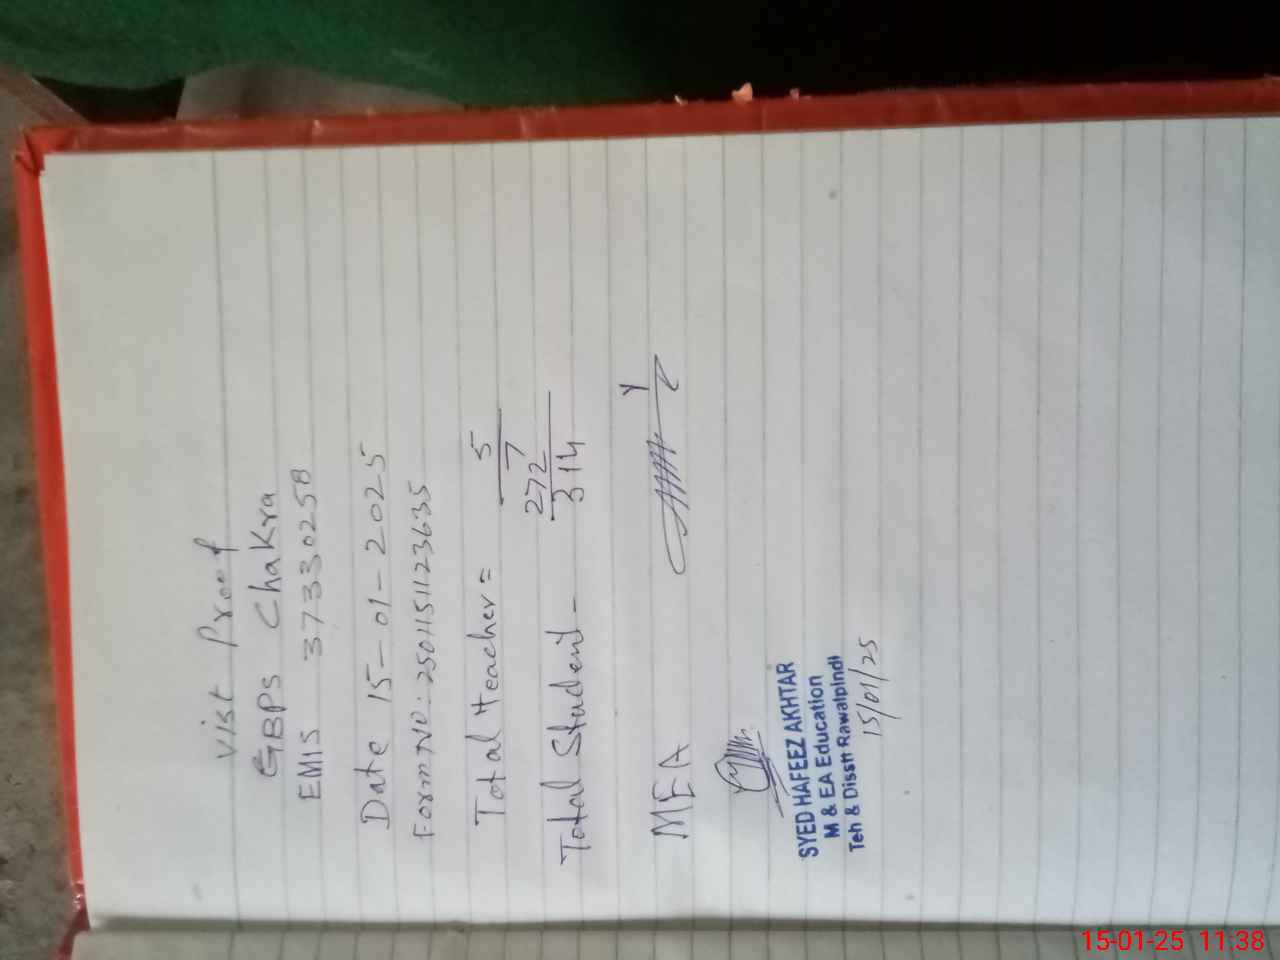 Vist Proof
GBPS Chakra
EMIS 37330258
Date 15-01-2025
Form NO: 2501151123635
Total teacher = 5/7
Total Student - 272/314
MEA
SYED HAFEEZ AKHTAR
M & EA Education
Teh & Disstt Rawalpindi
15/01/25
15-01-25 11:38